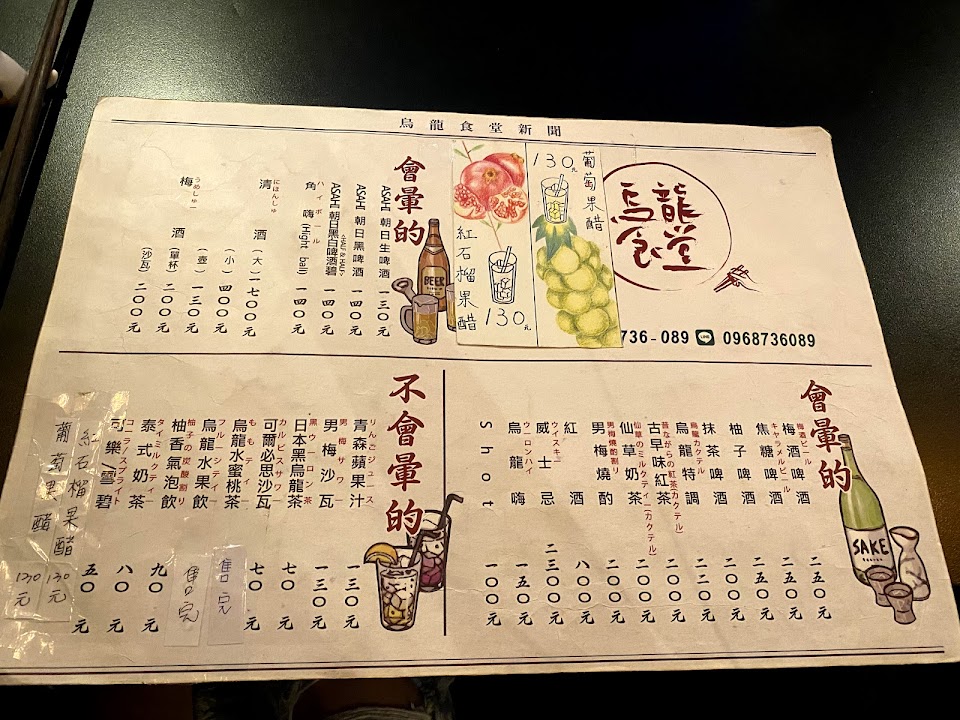 烏龍食堂新聞
烏龍食堂
736-089 LINE 0968736089
葡萄果醋
130元
紅石榴果醋
130元
會暈的
BEER
ASAHI 朝日生啤酒 一三〇元
ASAHI 朝日黑啤酒 一四〇元
ASAHI 朝日黑白啤酒碧 <HALF & HALF> 一四〇元
角嗨(Hight ball) ハイボール 一四〇元
清酒 にほんしゅ (大) 一七〇〇元
(小) 四〇〇元
梅酒 うめしゅー (壺) 一三〇元
(單杯) 二〇〇元
(沙瓦) 二〇〇元
會暈的
SAKE
梅酒啤酒 梅酒ビール 二五〇元
焦糖啤酒 キャラメルビール 二五〇元
柚子啤酒 二五〇元
抹茶啤酒 二二〇元
烏龍特調 烏龍カクテル 二二〇元
古早味紅茶 昔ながらの紅茶(カクテル) 二〇〇元
仙草奶茶 仙草のミルクティー(カクテル) 二〇〇元
男梅燒酌 男梅燒酌割り 二〇〇元
紅酒 八〇〇元
威士忌 ウイスキー 二三〇〇元
烏龍嗨 ウーロンハイ 一五〇元
Shot 一〇〇元
不會暈的
青森蘋果汁 りんごジュース 一三〇元
男梅沙瓦 男梅サワー 一三〇元
日本黑烏龍茶 黒ウーロン茶 七〇元
可爾必思沙瓦 カルピスサワー 七〇元
烏龍水蜜桃茶 ももティー 售完
烏龍水果飲 フルーツティー
柚香氣泡飲 柚子の炭酸割り 售完
泰式奶茶 タイミルクティー 九〇元
可樂/雪碧 コーラ/スプライト 八〇元
五〇元
紅石榴果醋 130元
葡萄果醋 130元